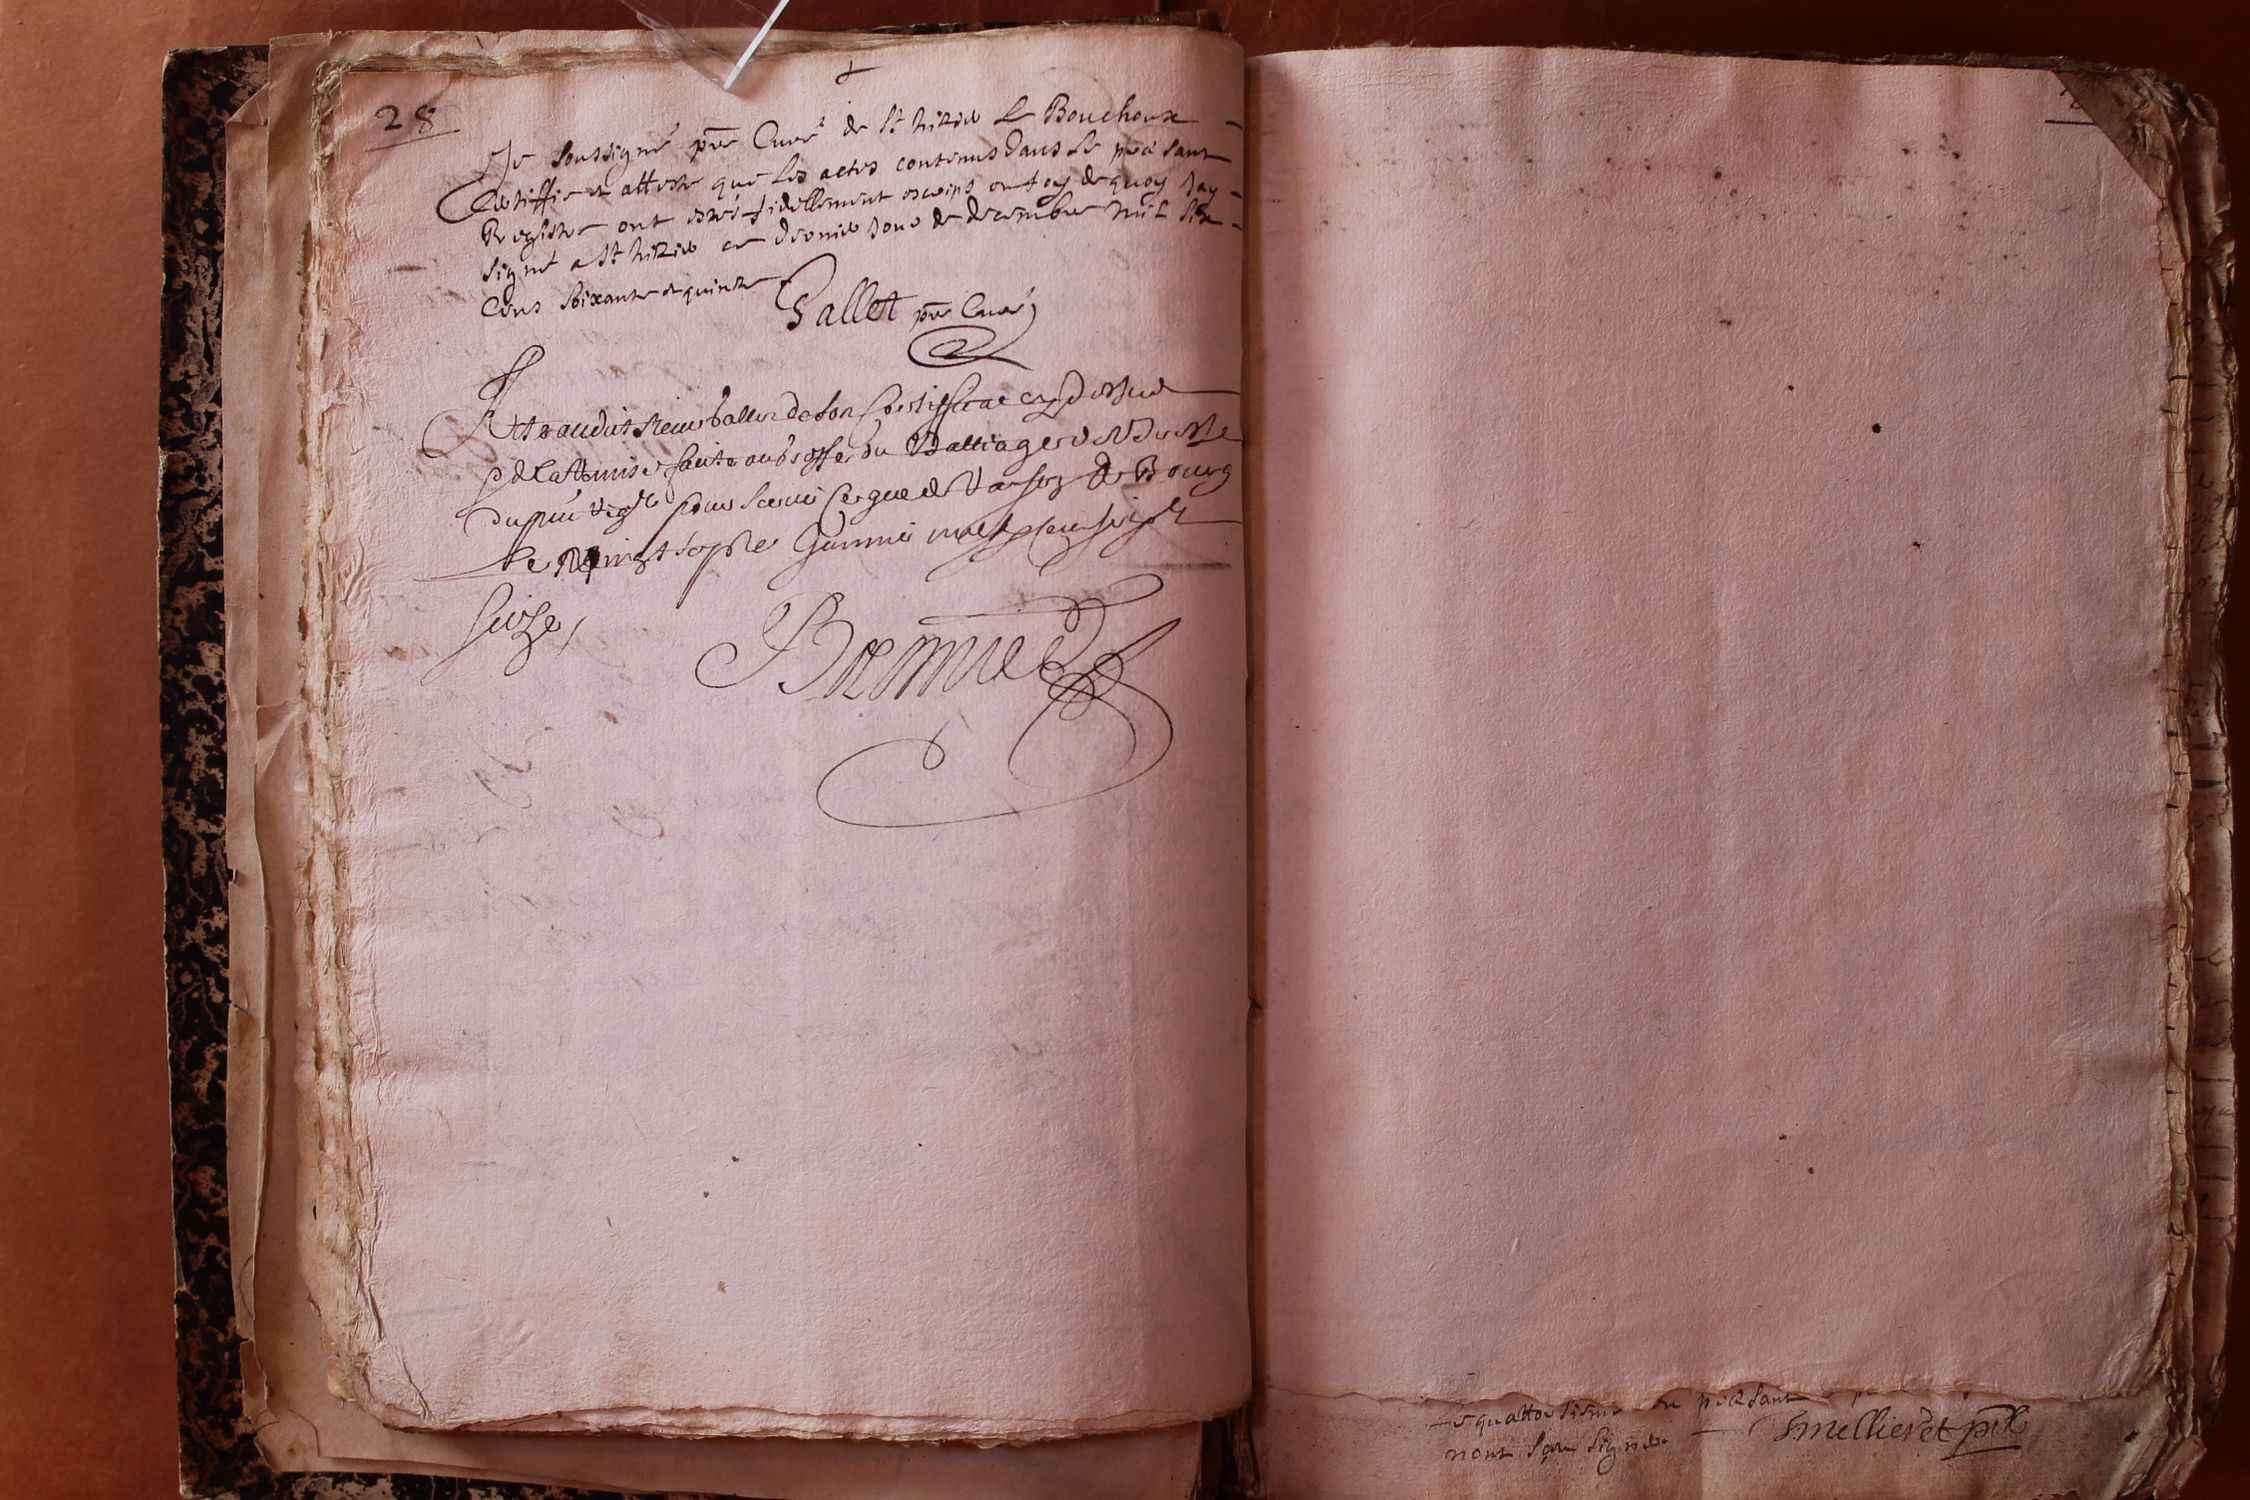 28
Je soussigné pre Curé de St nizier Le Bouchoux
Certiffie et atteste que les actes contenus dans le present
Registre ont estés fidellement escrips en foy de quoy Jay
signé a St nizier ce dernier Jour de decembre mil six
Cens soixante et quinze
Gallet pre Curé
Acte audit sieur Gallet de son Certifficat cy dessus
de la remise faite au greffe du Balliage de Bresse
du pnt Regre pour servir ce que de raison A Bourg
le vingt sept Janvier mil six cens soixante
seize
quattorsieme du present
nont sceu signer
Smellieret pre